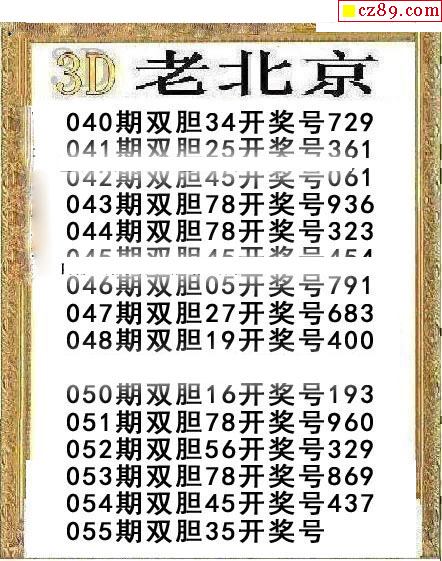 cz89.com
3D 老北京
040期双胆34开奖号729
041期双胆25开奖号361
042期双胆45开奖号061
043期双胆78开奖号936
044期双胆78开奖号323
045期双胆45开奖号454
046期双胆05开奖号791
047期双胆27开奖号683
048期双胆19开奖号400
050期双胆16开奖号193
051期双胆78开奖号960
052期双胆56开奖号329
053期双胆78开奖号869
054期双胆45开奖号437
055期双胆35开奖号